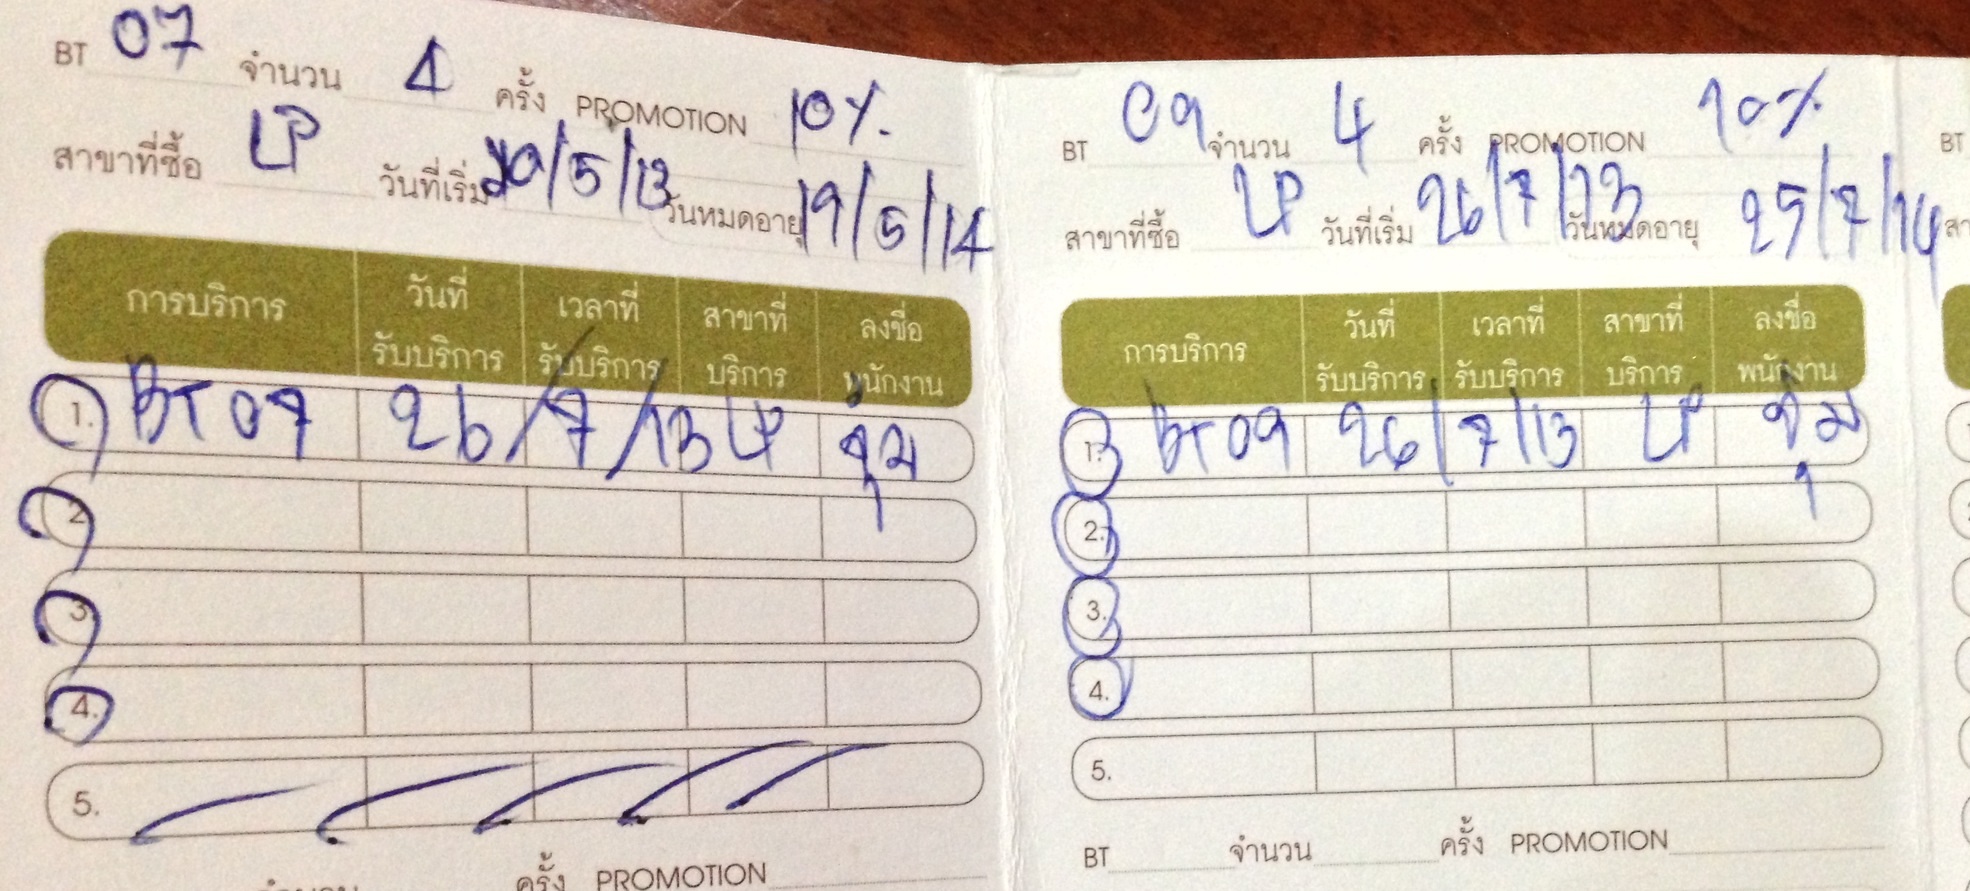 BT 07 จำนวน 4 ครั้ง PROMOTION 10%
สาขาที่ซื้อ LP วันที่เริ่ม 20/5/13 วันหมดอายุ 19/5/14
การบริการ วันที่รับบริการ เวลาที่รับบริการ สาขาที่บริการ ลงชื่อพนักงาน
1. BT 07 26/7/13 LP
2.
3.
4.
5.
จำนวน ครั้ง PROMOTION
BT 09 จำนวน 4 ครั้ง PROMOTION 10%
สาขาที่ซื้อ LP วันที่เริ่ม 26/7/13 วันหมดอายุ 25/7/14
การบริการ วันที่รับบริการ เวลาที่รับบริการ สาขาที่บริการ ลงชื่อพนักงาน
1. BT 09 26/7/13 LP
2.
3.
4.
5.
BT จำนวน ครั้ง PROMOTION
BT